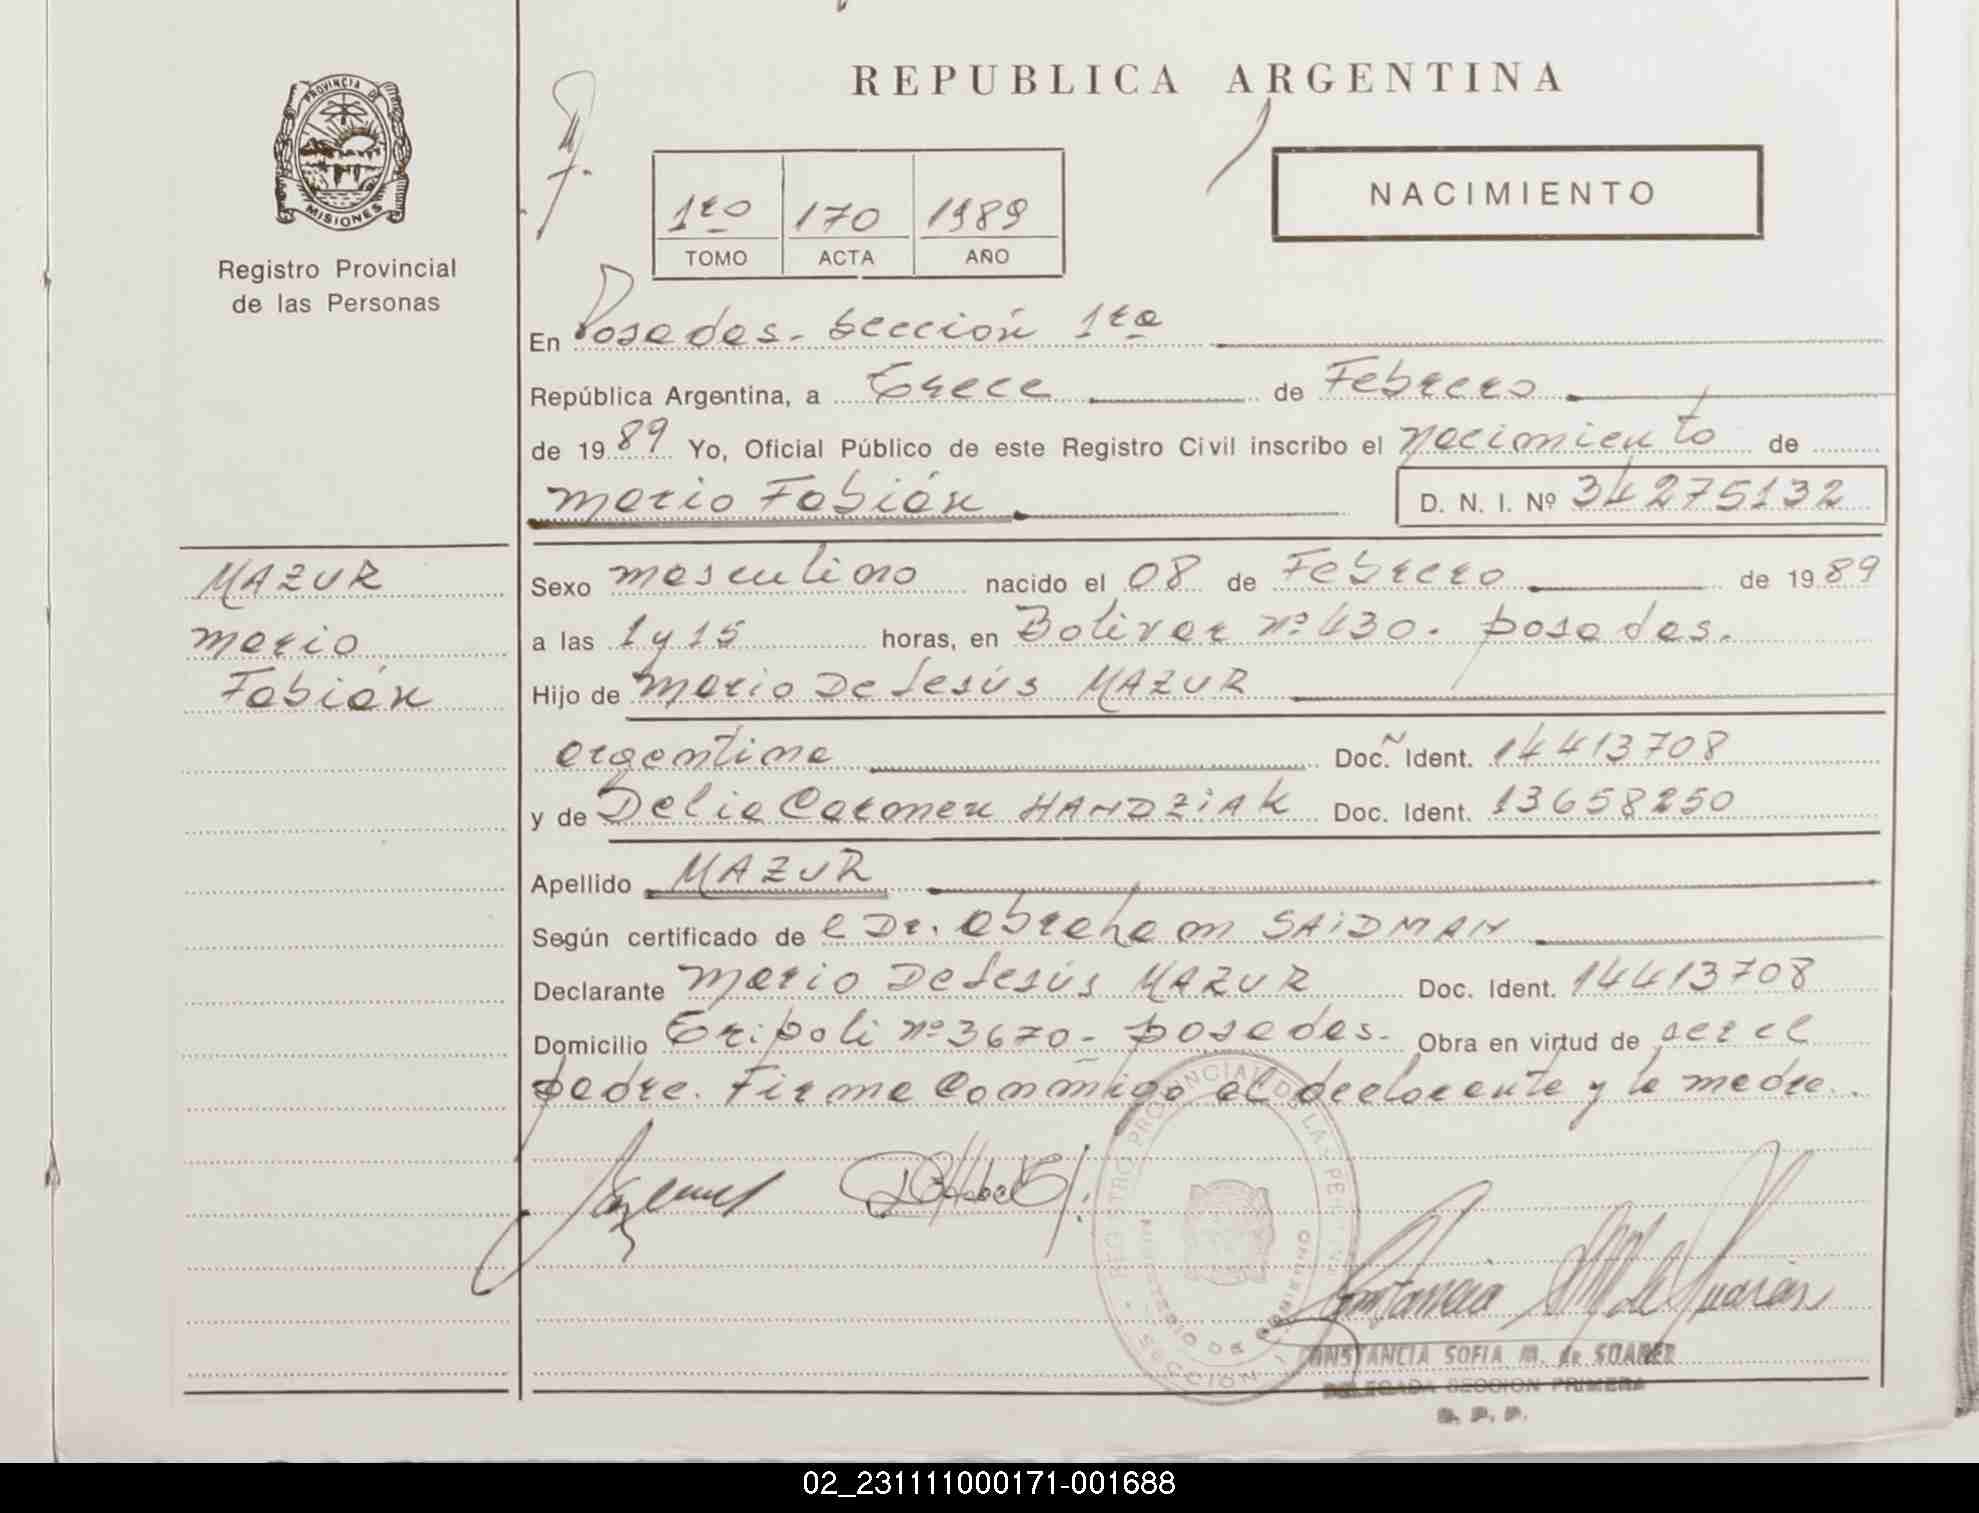 REPUBLICA ARGENTINA
PROVINCIA DE
MISIONES
Registro Provincial
de las Personas
1ro 170 1989
TOMO ACTA AÑO
NACIMIENTO
En Posadas - Sección 1ra
República Argentina, a Trece de Febrero
de 1989 Yo, Oficial Público de este Registro Civil inscribo el nacimiento de
Mario Fabián D. N. I. Nº 34275132
MAZUR
Mario
Fabián
Sexo masculino nacido el 08 de Febrero de 1989
a las 1 y 15 horas, en Bolivar nº 430. Posadas.
Hijo de Mario De Jesús MAZUR
argentino Doc. Ident. 14413708
y de Delia Carmen HANDZiAK Doc. Ident. 13658250
Apellido MAZUR
Según certificado de e Dr. Abraham SAiDMAN
Declarante Mario De Jesús MAZUR Doc. Ident. 14413708
Domicilio Tripoli nº 3670 - Posadas. Obra en virtud de ser el
padre. Firma Conmigo el declarante y la madre.
REGISTRO PROVINCIAL DE LAS PERSONAS
MINISTERIO DE GOBIERNO
SECCION 1
CONSTANCIA SOFIA M. de SUAREZ
DELEGADA SECCION PRIMERA
R. P. P.
02_231111000171-001688